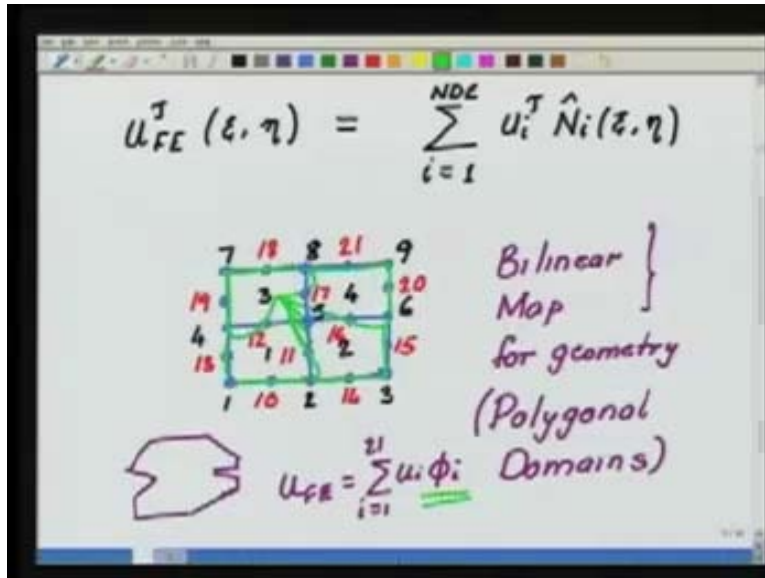 u_{FE}^J (ξ, η) = \sum_{i=1}^{NDE} u_i^J \hat{N}_i (ξ, η)
7 18 8 21 9
19 3 17 4 20
4 5 6
12 16
13 1 11 2 15
1 10 2 14 3
Bilinear
Map
for geometry
(Polygonal
Domains)
u_{FE} = \sum_{i=1}^{21} u_i φ_i